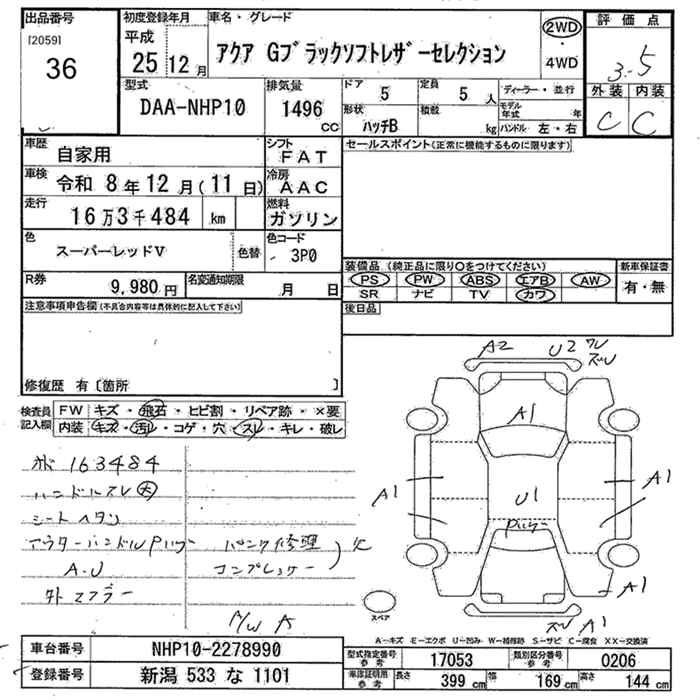 出品番号 初度登録年月 車名・グレード 評価点
[2059] 平成 2WD
36 25 12月 アクア Gブラックソフトレザーセレクション ・ 4WD 3.5
型式 排気量 ドア 5 定員 5人 ディーラー・並行 外装 内装
DAA-NHP10 1496 cc 形状 ハッチB 積載 kg モデル年式 年 C C
ハンドル 左・右
車歴 自家用 シフト FAT セールスポイント(正常に機能するものに限ります)
車検 令和 8年12月(11日) 冷房 AAC
走行 16万3千484 km 燃料 ガソリン
色 スーパーレッドV 色替 色コード 3P0
R券 9,980円 名変通知期限 月 日 装備品(純正品に限り○をつけてください) 新車保証書
PS PW ABS エアB AW 有・無
SR ナビ TV カワ
注意事項申告欄(不具合内容等は具体的に記入して下さい) 後日品
修復歴 有〔箇所 〕
検査員記入欄 FW キズ・飛石・ヒビ割・リペア跡・×要
内装 キズ・汚レ・コゲ・穴・スレ・キレ・破レ
A2 U2
A1
163484
A1 A1
ハンドルスレ 大 U1
シートヘタリ
アウターハンドル パンク修理
A.U コンプレッサー 欠
外マフラー A1
スペア
A1
A-キズ E-エクボ U-凹み W-補修跡 S-サビ C-腐食 XX-交換済
車台番号 NHP10-2278990 型式指定番号 参考 17053 類別区分番号 参考 0206
登録番号 新潟 533 な 1101 車庫証明用 参考 長さ 399 cm 幅 169 cm 高さ 144 cm